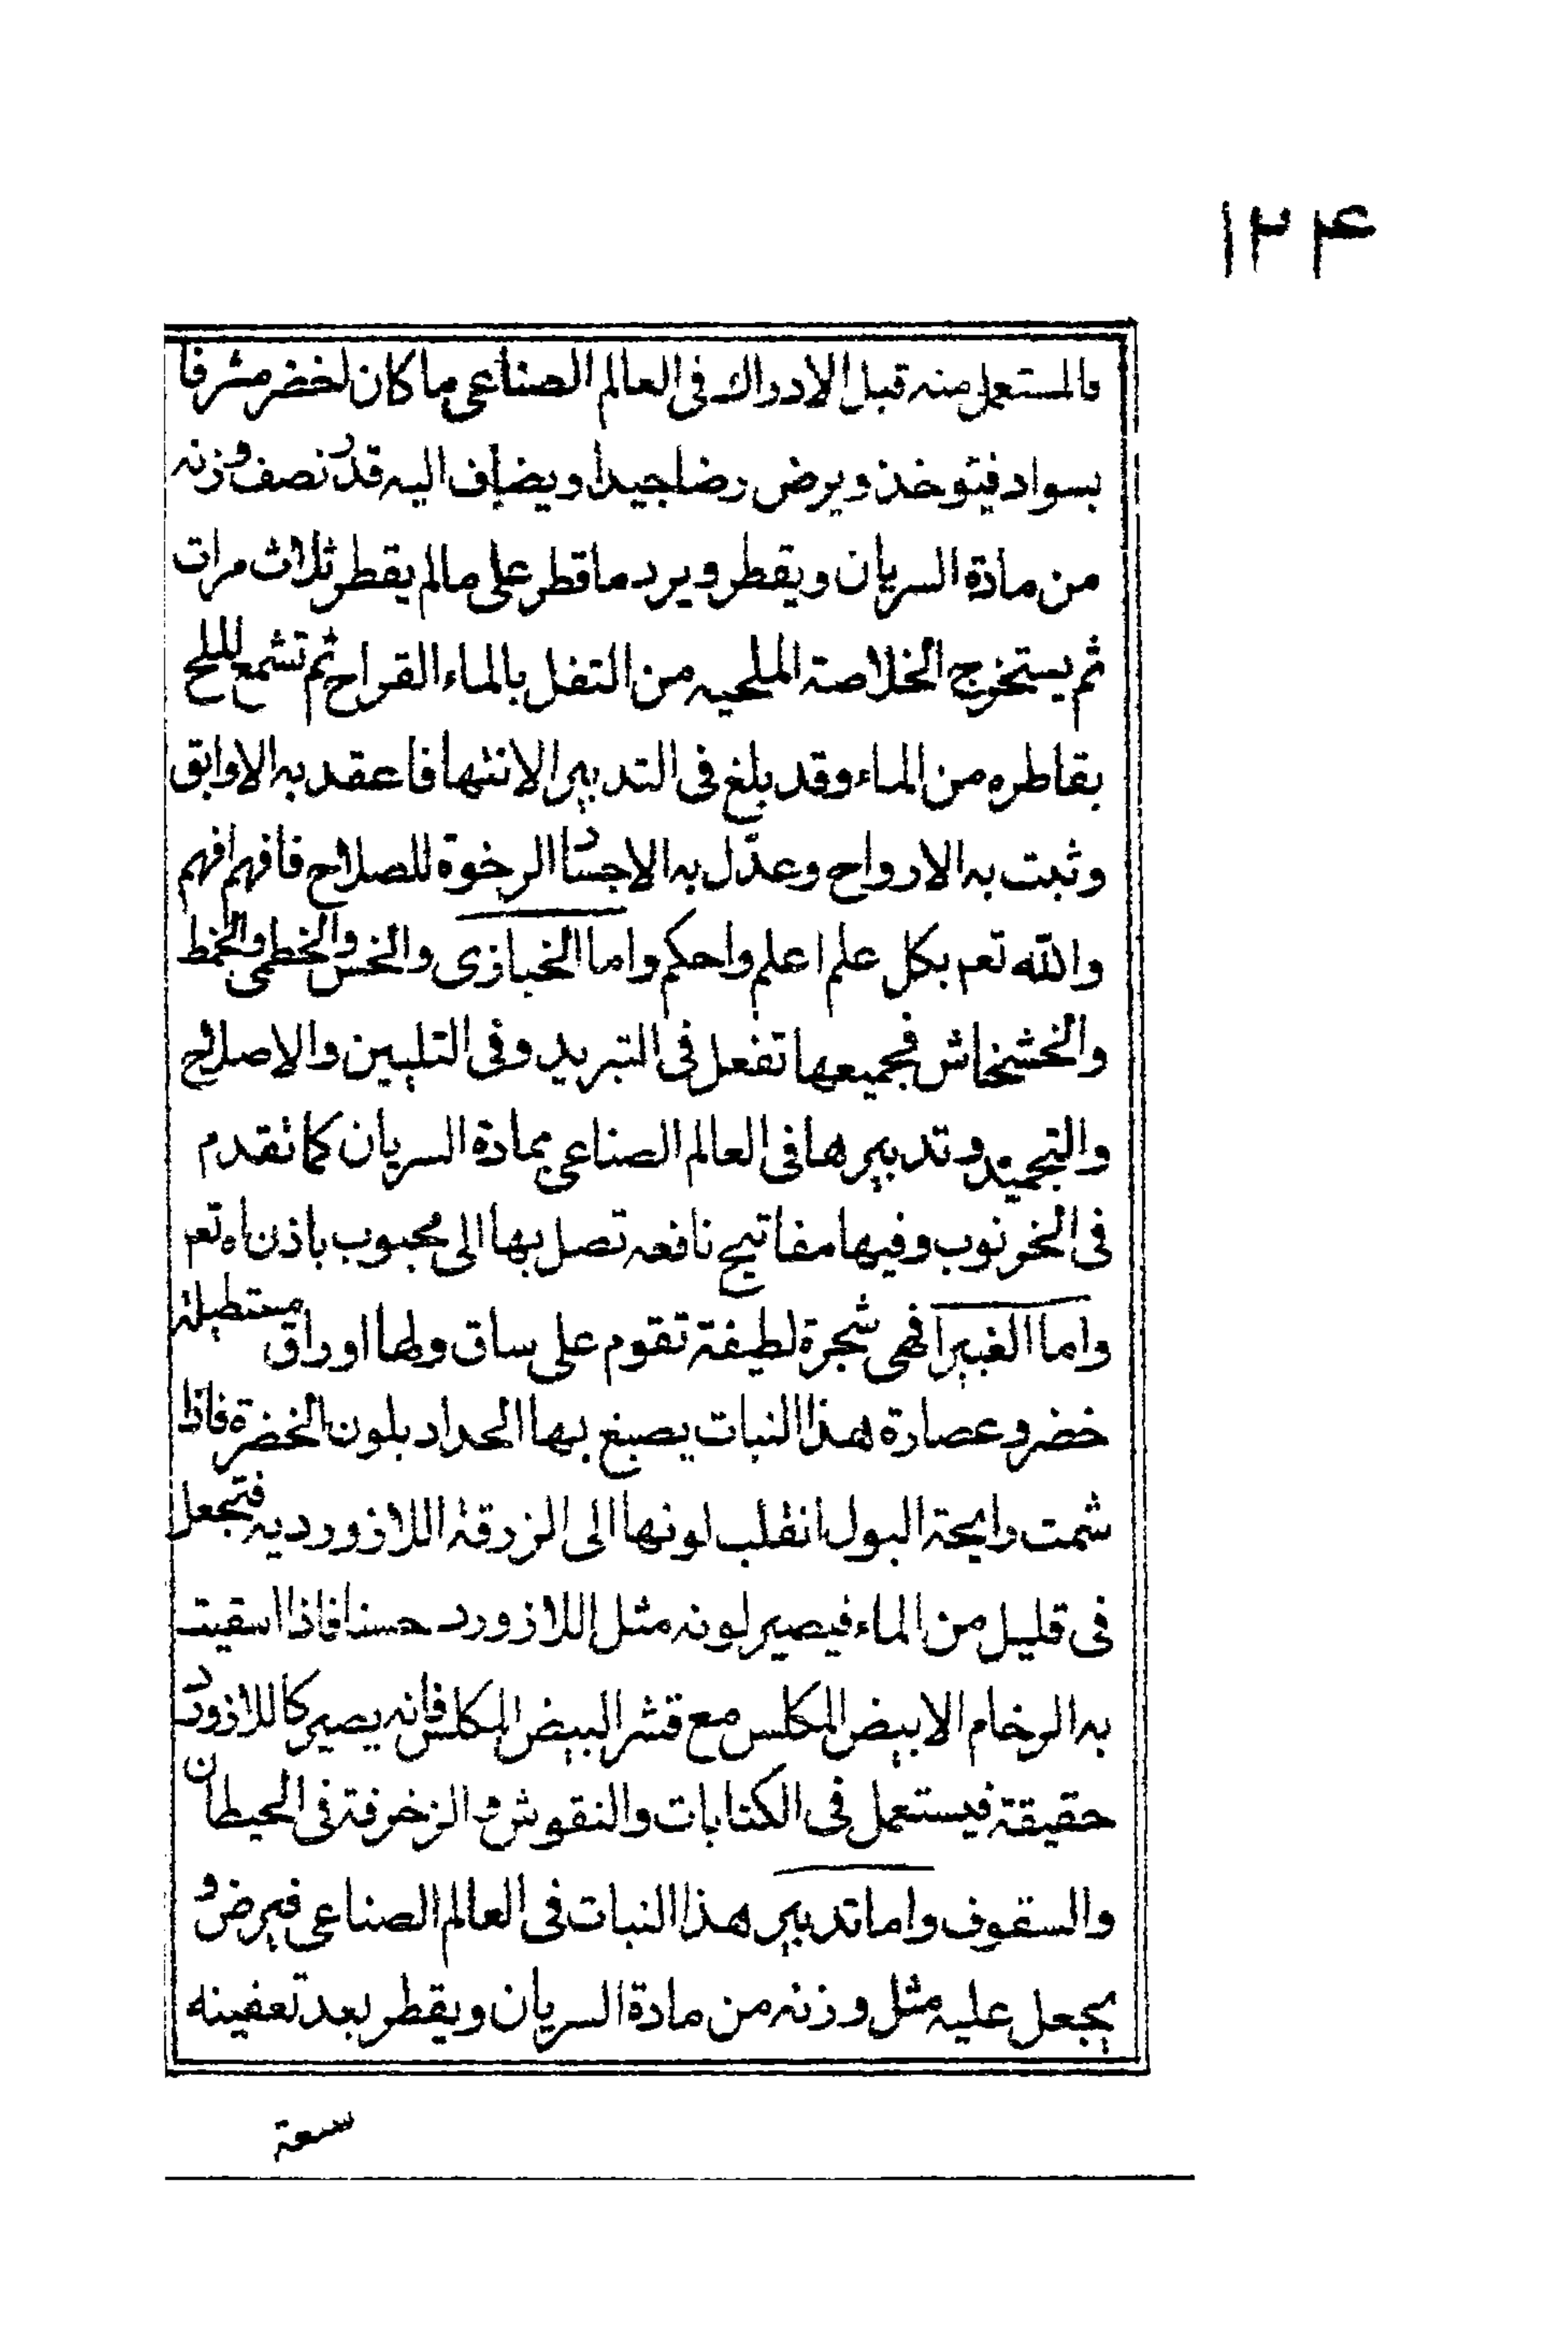 ۱۲۴
فالمستعمل منه قبل الادراك فى العالم الصناعى ما كان اخضر مشرفا
بسواد فيتوخذ ويرض رضا جيدا ويضاف اليه قدر نصف وزنه
من مادة السريان ويقطر ويرد ما قطر على مالم يقطر ثلاث مرات
ثم يستخرج الخلاصة الملحيه من التفل بالماء القراح ثم تشمع الملح
بقاطره من الماء وقد بلغ فى التدبير الانتها فاعقد به الاوابق
وثبت به الارواح وعدّل به الاجساد الرخوة للصلاح فافهم افهم
والله تعم بكل علم اعلم واحكم واما الخبازى والخس والخطمى والخمط
والخشخاش فجميعها تفعل فى التبريد وفى التليين والاصلاح
والتجميد وتدبيرها فى العالم الصناعى بمادة السريان كما تقدم
فى الخرنوب وفيها مفاتيح نافعه تصل بها الى محبوب باذن اه تعم
واما الغبيرا فهى شجرة لطيفة تقوم على ساق ولها اوراق مستطيلة
خضر وعصارة هذا النبات يصبغ بها الحداد بلون الخضرة فاذا
شمت رايحة البول انقلب لونها الى الزرقة اللازورديه فتجعل
فى قليل من الماء فيصير لونه مثل اللازورد حسنا فاذا اسقيت
به الرخام الابيض المكلس مع قشر البيض المكلس فانه يصير كاللازورد
حقيقة فيستعمل فى الكتابات والنقوش والزخرفة فى الحيطان
والسقوف واما تدبير هذا النبات فى العالم الصناعى فيرض و
يجعل عليه مثل وزنه من مادة السريان ويقطر بعد تعفينه
سعة